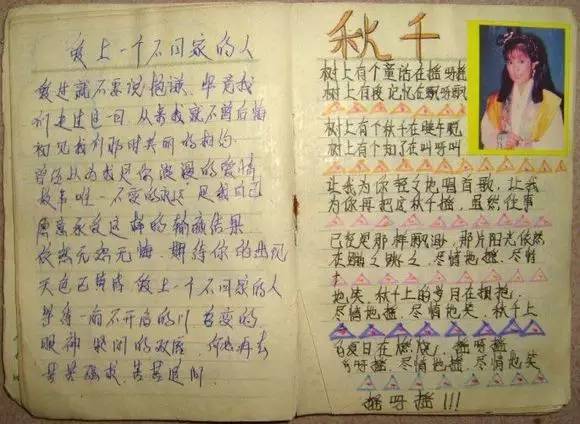 爱上一个不回家的人
爱过就不要说抱谦 毕竟我
们走过这一回 从来我就不曾后悔
初见我们那时共同的相约
曾经以为我是你浪漫的爱情
故事唯一不变的永远 是我自己
愿意承受这样的输赢结果
依然无怨无悔 期待你的出现
天色已黄昏 爱上一个不回家的人
等待一扇不开启的门 善变的
眼神 紧闭的双唇 何必再去
苦苦强求 苦苦追问
秋千
树上有个童话在摇呀摇
树上有段记忆在飘呀飘
树上有个秋千在睡午觉
树上有个知了在叫呀叫
让我为你轻轻地唱首歌，让我
为你再把这秋千摇，虽然往事
已经是那样飘渺，那片阳光依然
在跳之跳之，尽情地摇，尽情
地笑，秋千上的岁月在拥抱，
尽情地摇，尽情地笑，秋千上
的夏日在燃烧，摇呀摇
呀摇，尽情地摇，尽情地笑
摇呀摇!!!